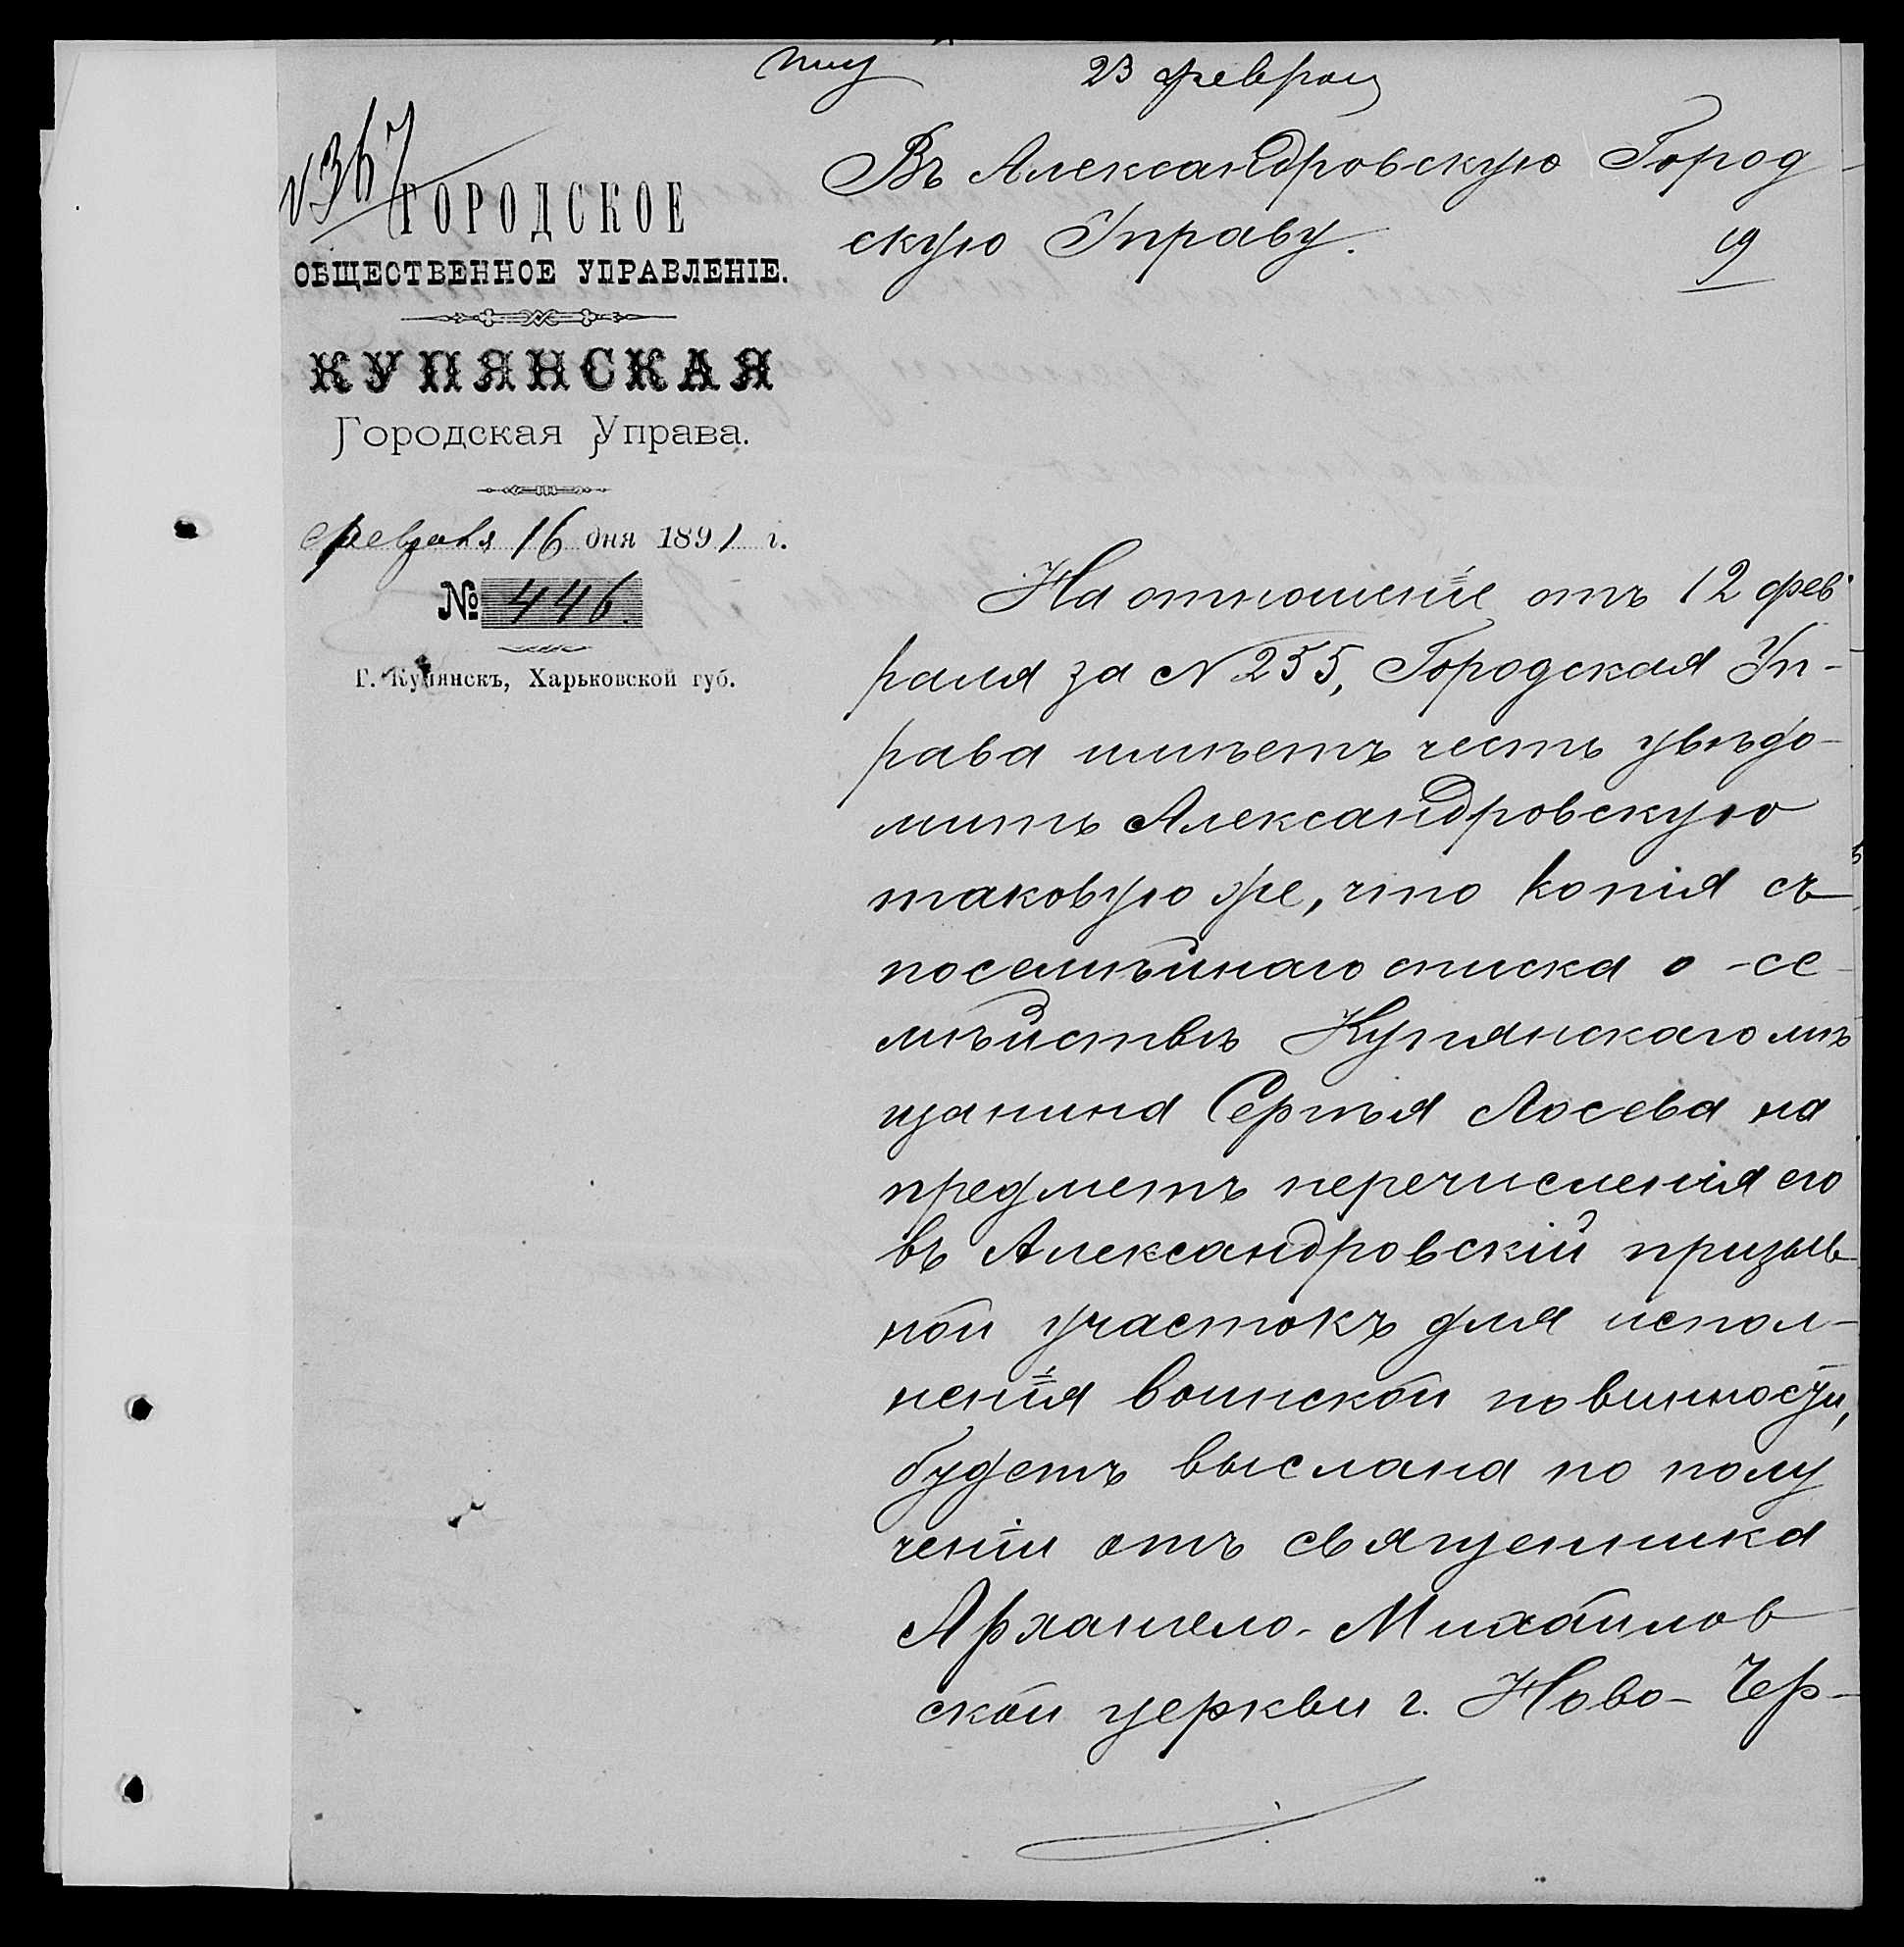 23 февраля
№ 367
ГОРОДСКОЕ
ОБЩЕСТВЕННОЕ УПРАВЛЕНІЕ.
КУПЯНСКАЯ
Городская Управа.
февраля 16 дня 1891 г.
№ 446.
Г. Купянскъ, Харьковской губ.
Въ Александровскую Город-
скую Управу.
19
На отношеніе отъ 12 фев-
раля за №255, Городская Уп-
рава имѣетъ честь увѣдо-
мить Александровскую
таковую же, что копія съ
посемѣйнаго списка о се-
мѣйствѣ Купянскаго мѣ
щанина Сергѣя Лосева на
предметъ перечисленія его
въ Александровскій призыв-
ной участокъ для испол-
ненія воинской повинности,
будетъ выслана по полу
ченіи отъ священника
Архангело-Михайлов
ской церкви г. Ново-Чер-